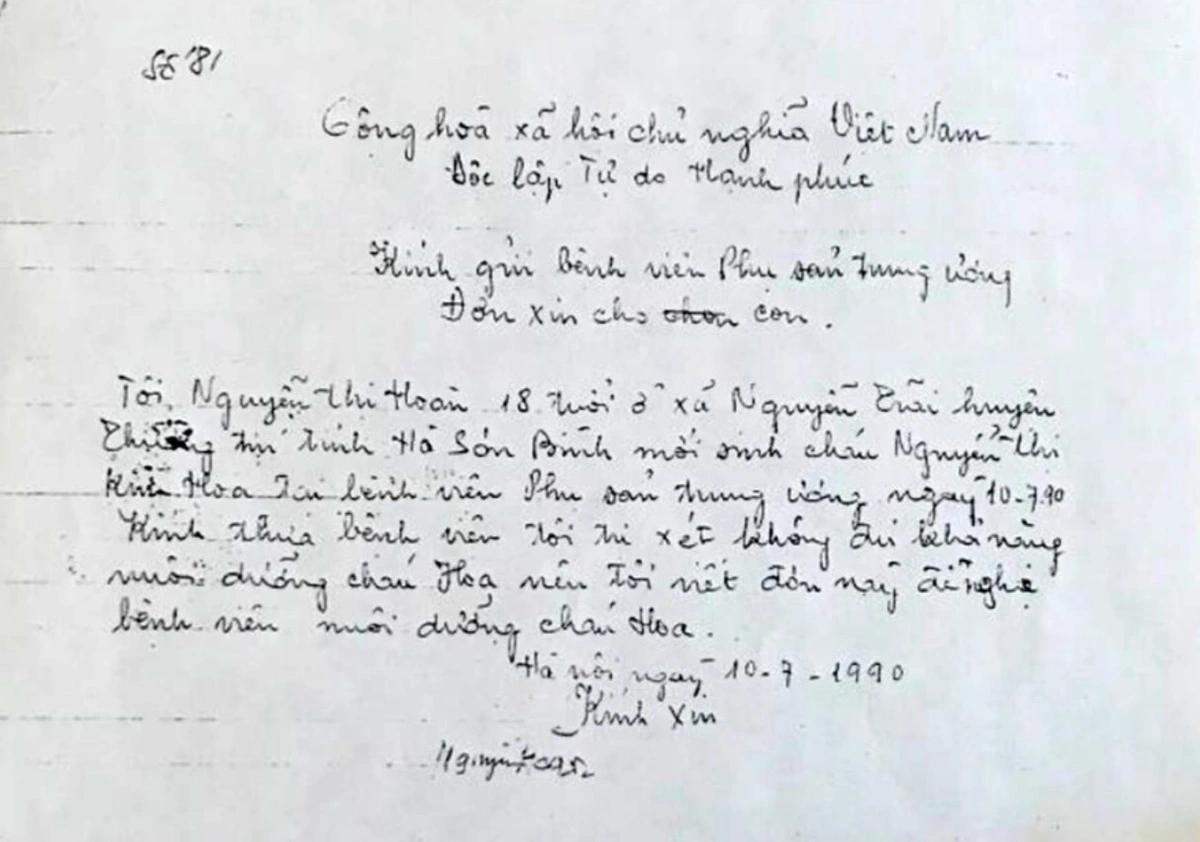 Số 81
Công hoà xã hôi chủ nghĩa Việt Nam
Độc lập Tự do Hạnh phúc
Kính gửi bệnh viên Phụ sản trung ương
Đơn xin cho chon con.
Tôi, Nguyễn thị Hoàn 18 tuổi ở xã Nguyễn Trãi huyên
Thường tín tỉnh Hà Sơn Bình mới sinh cháu Nguyễn thị
Kiều Hoa tại bênh viên Phụ sản trung ương ngay 10-7.90
Kính thưa bênh viên tôi tư xét không đủ khả năng
nuôi dưỡng cháu Hoa nên tôi viết đơn này đề nghị
bệnh viên nuôi dưỡng cháu Hoa.
Hà nôi ngay 10-7-1990
Kính xin